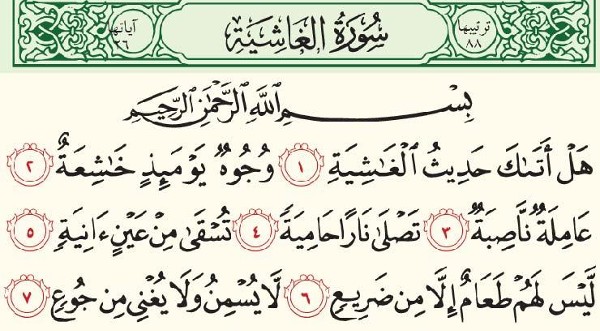 ترتيبها ٨٨ سُورَةُ الغَاشِيَةِ آياتها ٢٦
بِسْمِ اللَّهِ الرَّحْمَٰنِ الرَّحِيمِ
هَلْ أَتَىٰكَ حَدِيثُ ٱلْغَٰشِيَةِ ١ وُجُوهٌ يَوْمَئِذٍ خَٰشِعَةٌ ٢
عَامِلَةٌ نَّاصِبَةٌ ٣ تَصْلَىٰ نَارًا حَامِيَةً ٤ تُسْقَىٰ مِنْ عَيْنٍ ءَانِيَةٍ ٥
لَّيْسَ لَهُمْ طَعَامٌ إِلَّا مِن ضَرِيعٍ ٦ لَّا يُسْمِنُ وَلَا يُغْنِي مِن جُوعٍ ٧